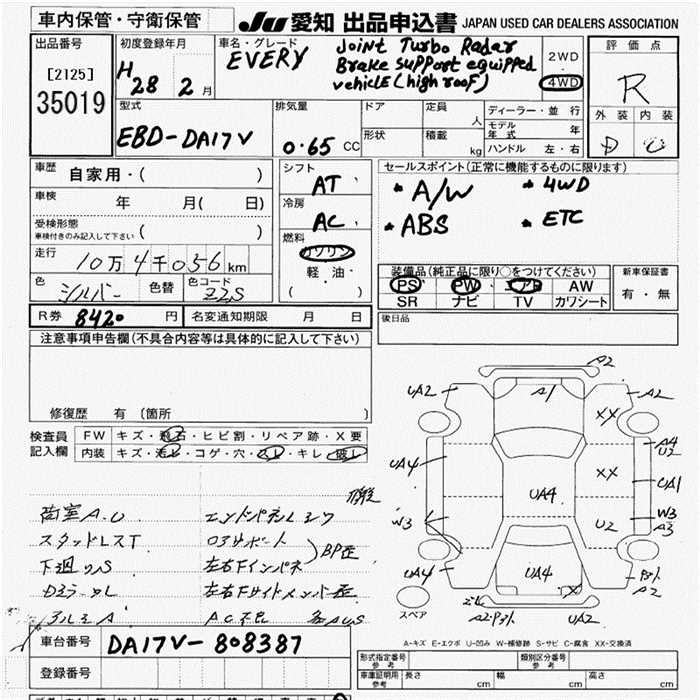 車内保管・守衛保管 JU 愛知 出品申込書 JAPAN USED CAR DEALERS ASSOCIATION
出品番号
[2125]
35019
初度登録年月
H 28 2月
車名・グレード
EVERY
Joint Turbo Radar
Brake support equipped
vehicle (high roof)
2WD
・
4WD
評価点
R
外装 内装
D C
型式
EBD-DA17V
排気量
0.65 CC
ドア 定員
人
形状 積載
kg
ディーラー・並行
モデル年式 年
ハンドル 左・右
車歴
自家用・( )
車検
年 月( 日)
受検形態
車検付きのみ記入して下さい ( )
走行
10万4千056km
色 シルバー 色替 色コード Z2S
シフト
AT
冷房
AC
燃料
ガソリン
軽・油・
( )
セールスポイント(正常に機能するものに限ります)
* A/W * 4WD
* ABS * ETC
装備品(純正品に限り○をつけてください)
PS PW エアB AW
SR ナビ TV カワシート
新車保証書
有・無
R券 8420 円 名変通知期限 月 日
後日品
注意事項申告欄(不具合内容等は具体的に記入して下さい)
修復歴 有(箇所 )
検査員記入欄
FW キズ・飛石・ヒビ割・リペア跡・X要
内装 キズ・汚レ・コゲ・穴・スレ・キレ・破レ
荷室A.U
スタッドレスT
下廻りS
アルミA
エンドパネル
コアサポート
左右Fインパネ
BP歪
左右Fサイドメンバー歪
AC不良 各AUS
A2
UA2 A1 A2
XX
A4
U2
UA4 XX UA1
UA4
W3 U2 W3
A3
UA4 UA4 X
A2
UA2
スペア
A-キズ E-エクボ U-凹み W-補修跡 S-サビ C-腐食 XX-交換済
車台番号 DA17V-808387
登録番号
形式指定番号 参考 類別区分番号 参考
車庫証明用 参考 長さ cm 幅 cm 高さ cm